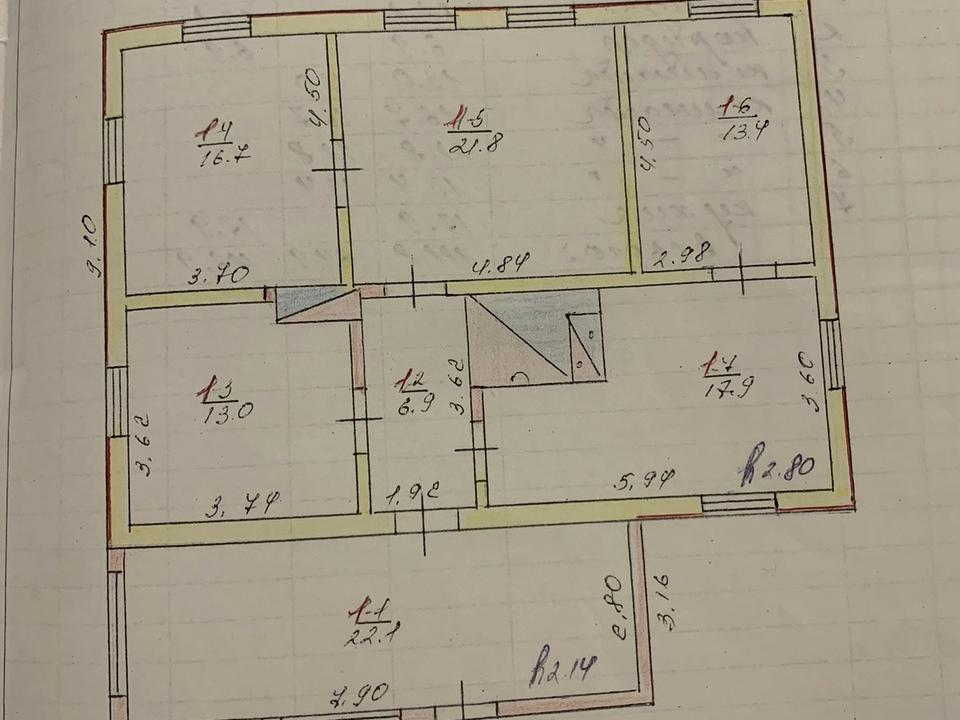 1-4
16.7
4.50
1-5
21.8
4.50
1-6
13.4
9.10
3.70
4.84
2.98
1-3
13.0
3.62
3.74
1-2
6.9
3.62
1.92
1-7
17.9
3.60
5.94
h2.80
1-1
22.1
2.80
3.16
7.90
h2.14